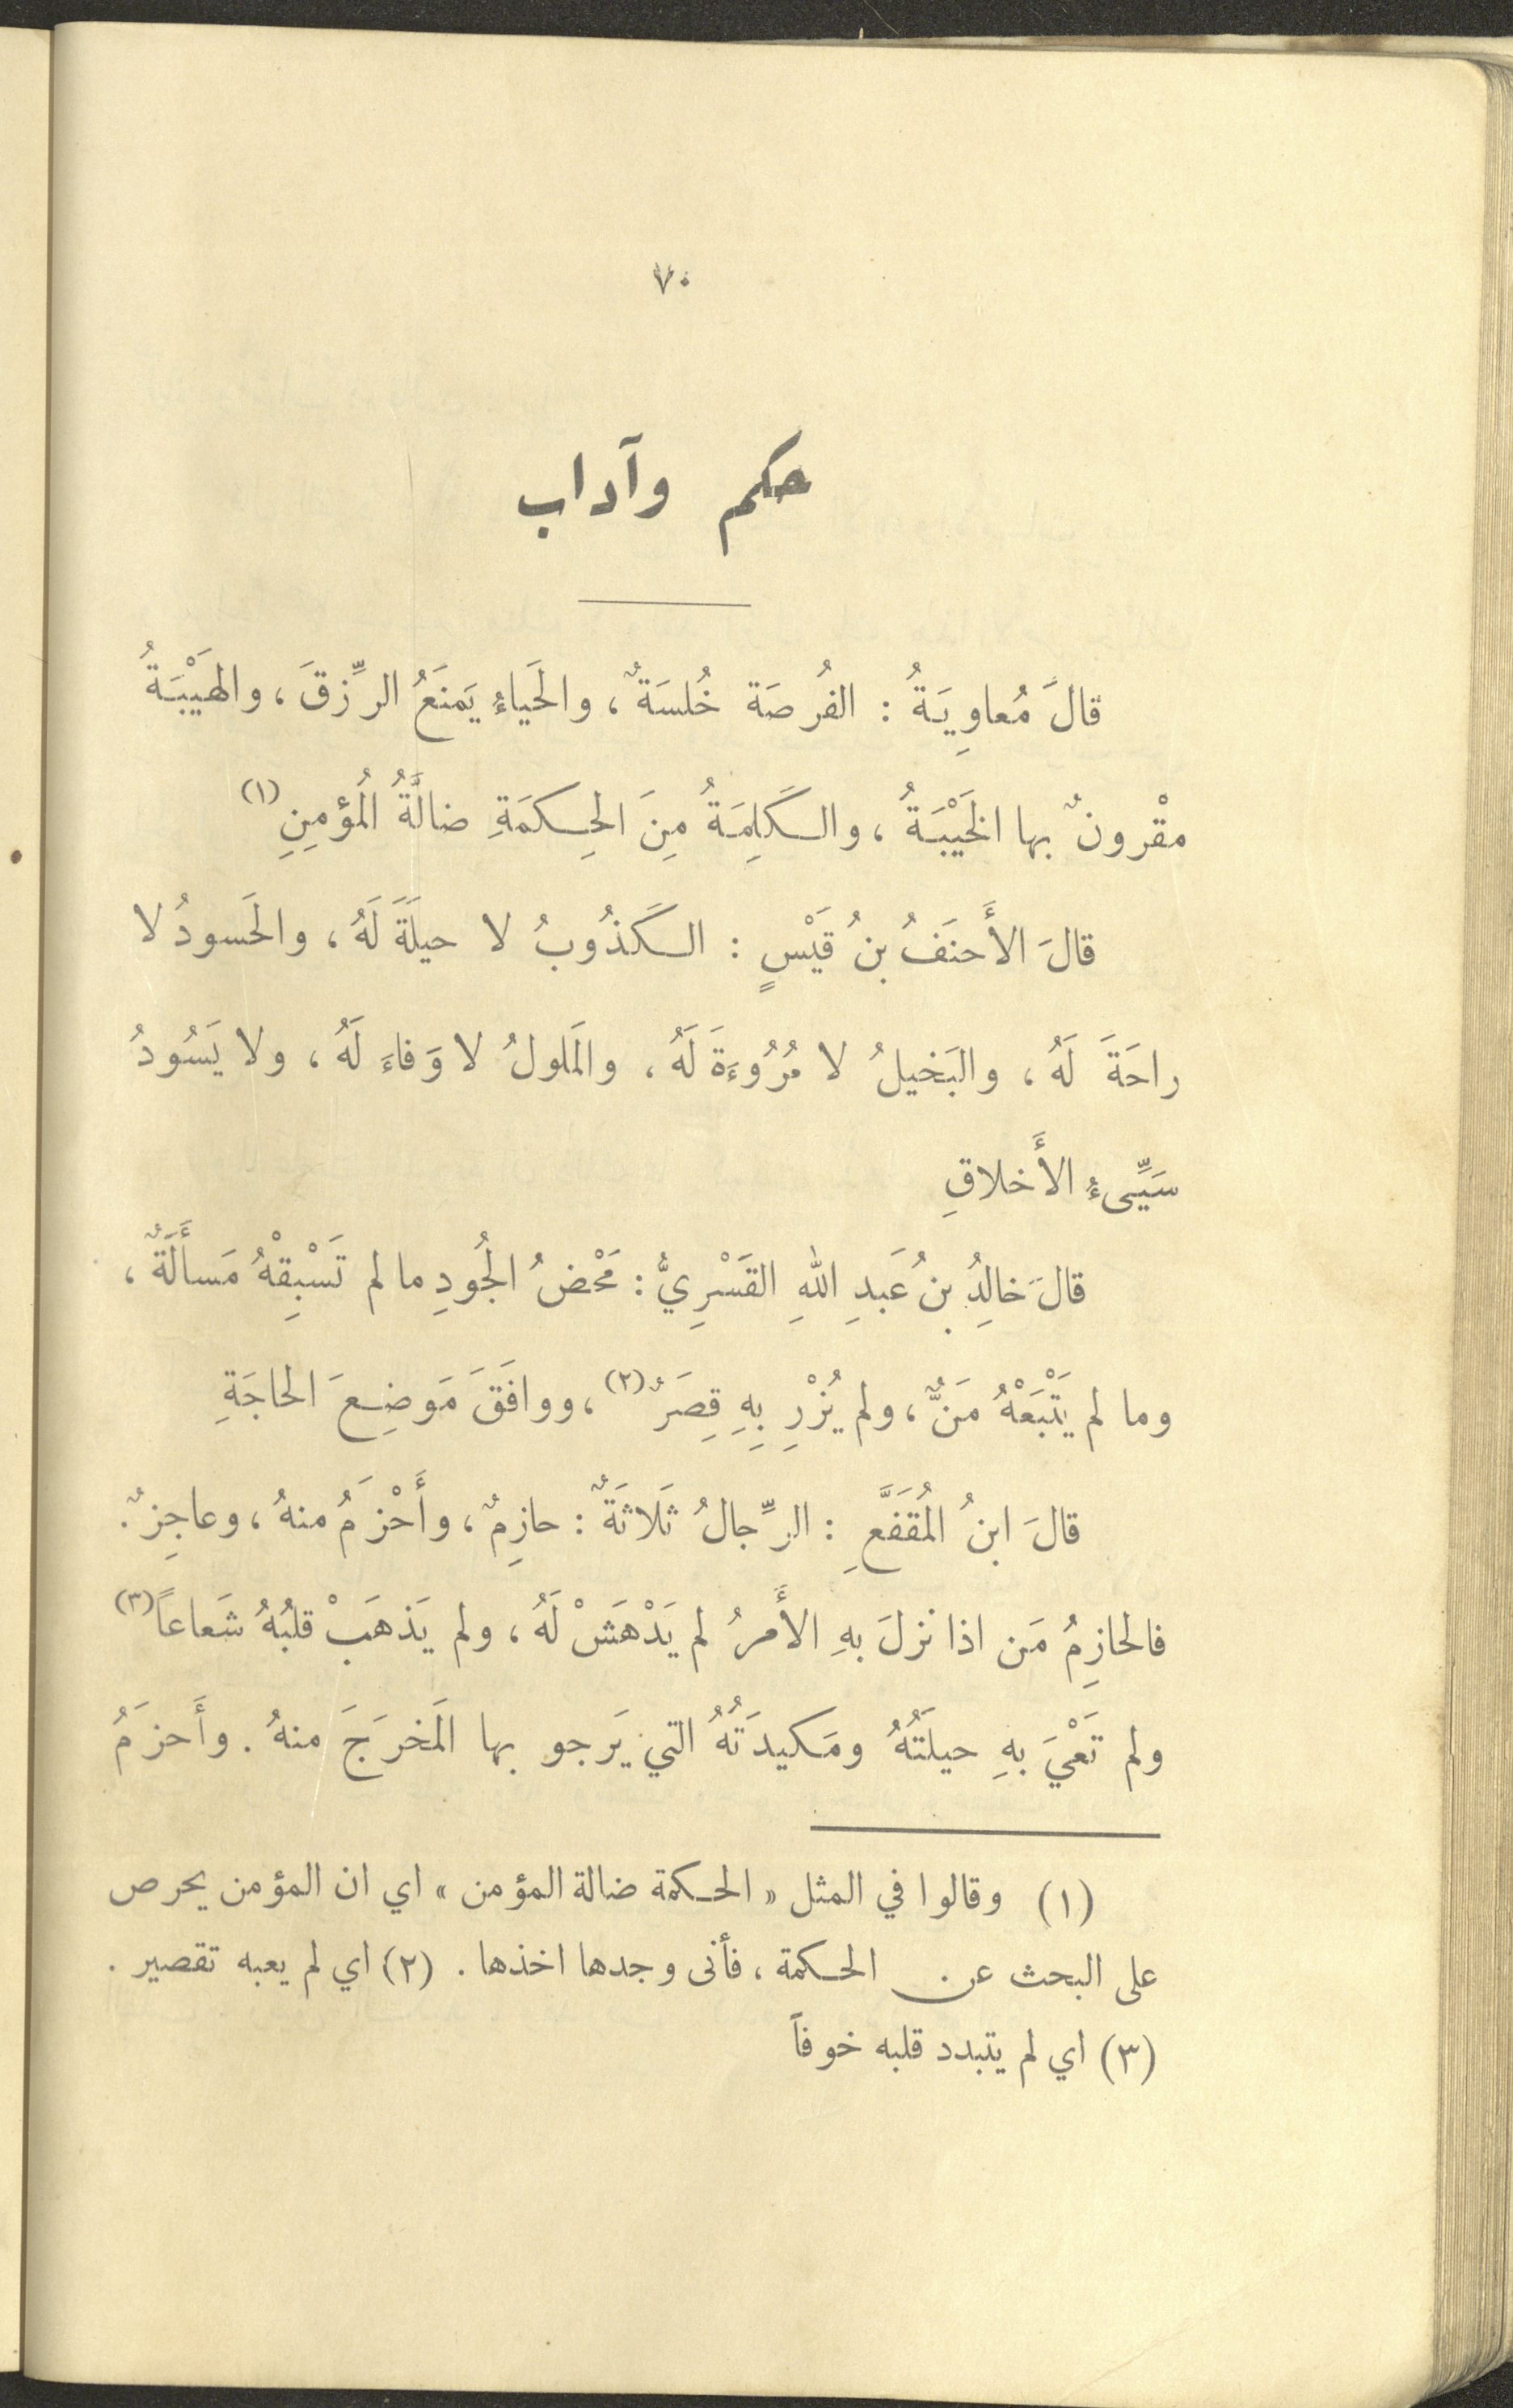 ٧٠
حكم وآداب
قالَ مُعاوِيَةُ : الفُرصَة خُلسَةٌ ، والحَياءُ يَمنَعُ الرِّزقَ ، والهَيْبَةُ
مقْرونٌ بها الخَيْبَةُ ، والكَلِمَةُ مِنَ الحِكمَةِ ضالَّةُ المُؤمِنِ (١)
قالَ الأَحنَفُ بنُ قَيْسٍ : الكَذُوبُ لا حيلَةَ لَهُ ، والحَسودُ لا
راحَةَ لَهُ ، والبَخيلُ لا مُرُوءَةَ لَهُ ، والمَلولُ لا وَفاءَ لَهُ ، ولا يَسُودُ
سَيِّىءُ الأَخلاقِ
قالَ خالِدُ بنُ عَبدِ اللهِ القَسْرِيُّ : مَحْضُ الجُودِ ما لم تَسْبِقْهُ مَسأَلَةٌ ،
وما لم يَتْبَعْهُ مَنٌّ ، ولم يُزْرِ بِهِ قِصَرٌ (٢) ، ووافَقَ مَوضِعَ الحاجَةِ
قالَ ابنُ المُقَفَّعِ : الرِّجالُ ثَلاثَةٌ : حازِمٌ ، وأَحْزَمُ منهُ ، وعاجِزٌ .
فالحازِمُ مَن اذا نزلَ بهِ الأَمرُ لم يَدْهَشْ لَهُ ، ولم يَذهَبْ قلبُهُ شَعاعاً (٣)
ولم تَعْيَ بهِ حيلَتُهُ ومَكيدَتُهُ التي يَرجو بها المَخرَجَ منهُ . وأَحزَمُ
(١) وقالوا في المثل « الحكمة ضالة المؤمن » اي ان المؤمن يحرص
على البحث عن الحكمة ، فأنى وجدها اخذها . (٢) اي لم يعبه تقصير .
(٣) اي لم يتبدد قلبه خوفاً